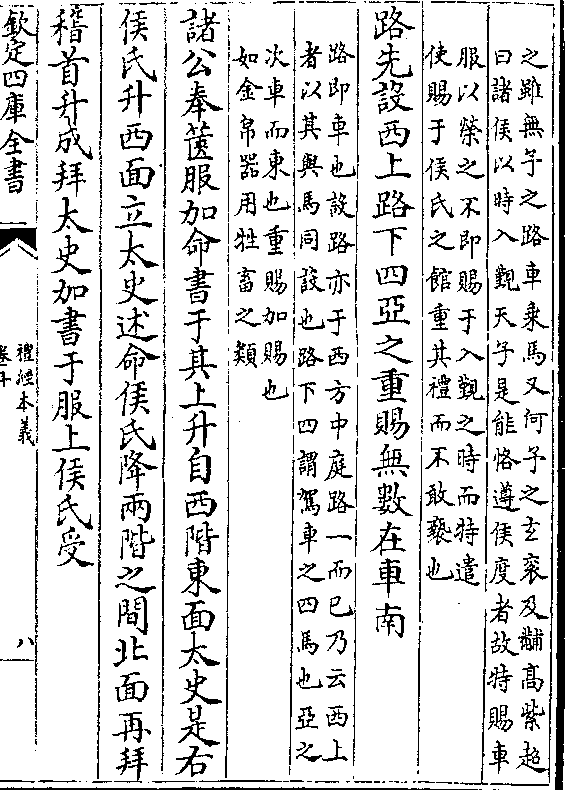 之雖無予之路車乘馬又何予之玄袞及黼髙紫超
曰諸侯以時入覲天子是能恪遵侯度者故特賜車
服以榮之不即賜于入覲之時而特遣
使賜于侯氏之館重其禮而不敢褻也
路先設西上路下四亞之重賜無數在車南
路即車也設路亦于西方中庭路一而已乃云西上
者以其與馬同設也路下四謂駕車之四馬也亞之
次車而東也重賜加賜也
如金帛器用牲畜之類
諸公奉篋服加命書于其上升自西階東面太史是右
侯氏升西面立太史述命侯氏降兩階之間北面再拜
稽首升成拜太史加書于服上侯氏受
欽定四庫全書
禮經本義
卷十
八